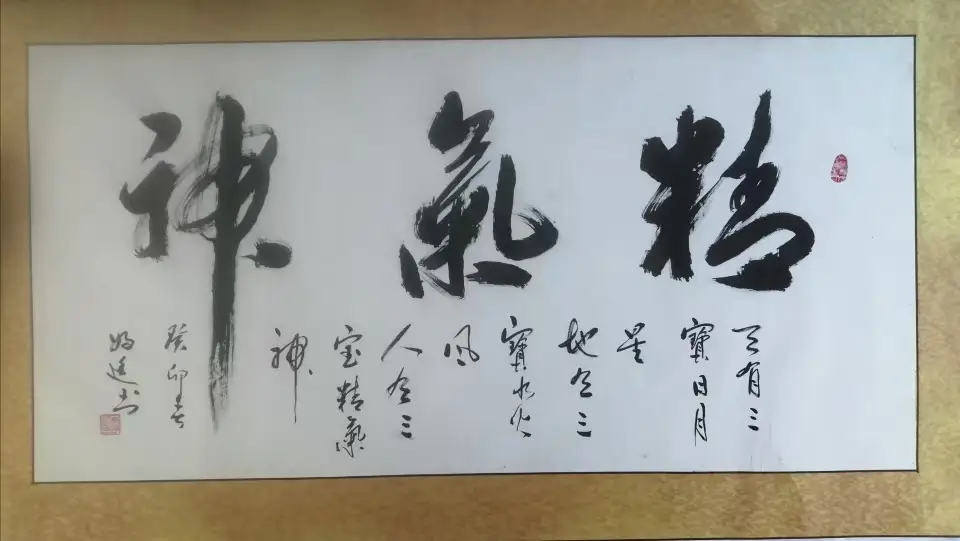 精氣神
天有三
寶日月
星
地有三
寶水火
風
人有三
宝精氣
神
癸卯春
書